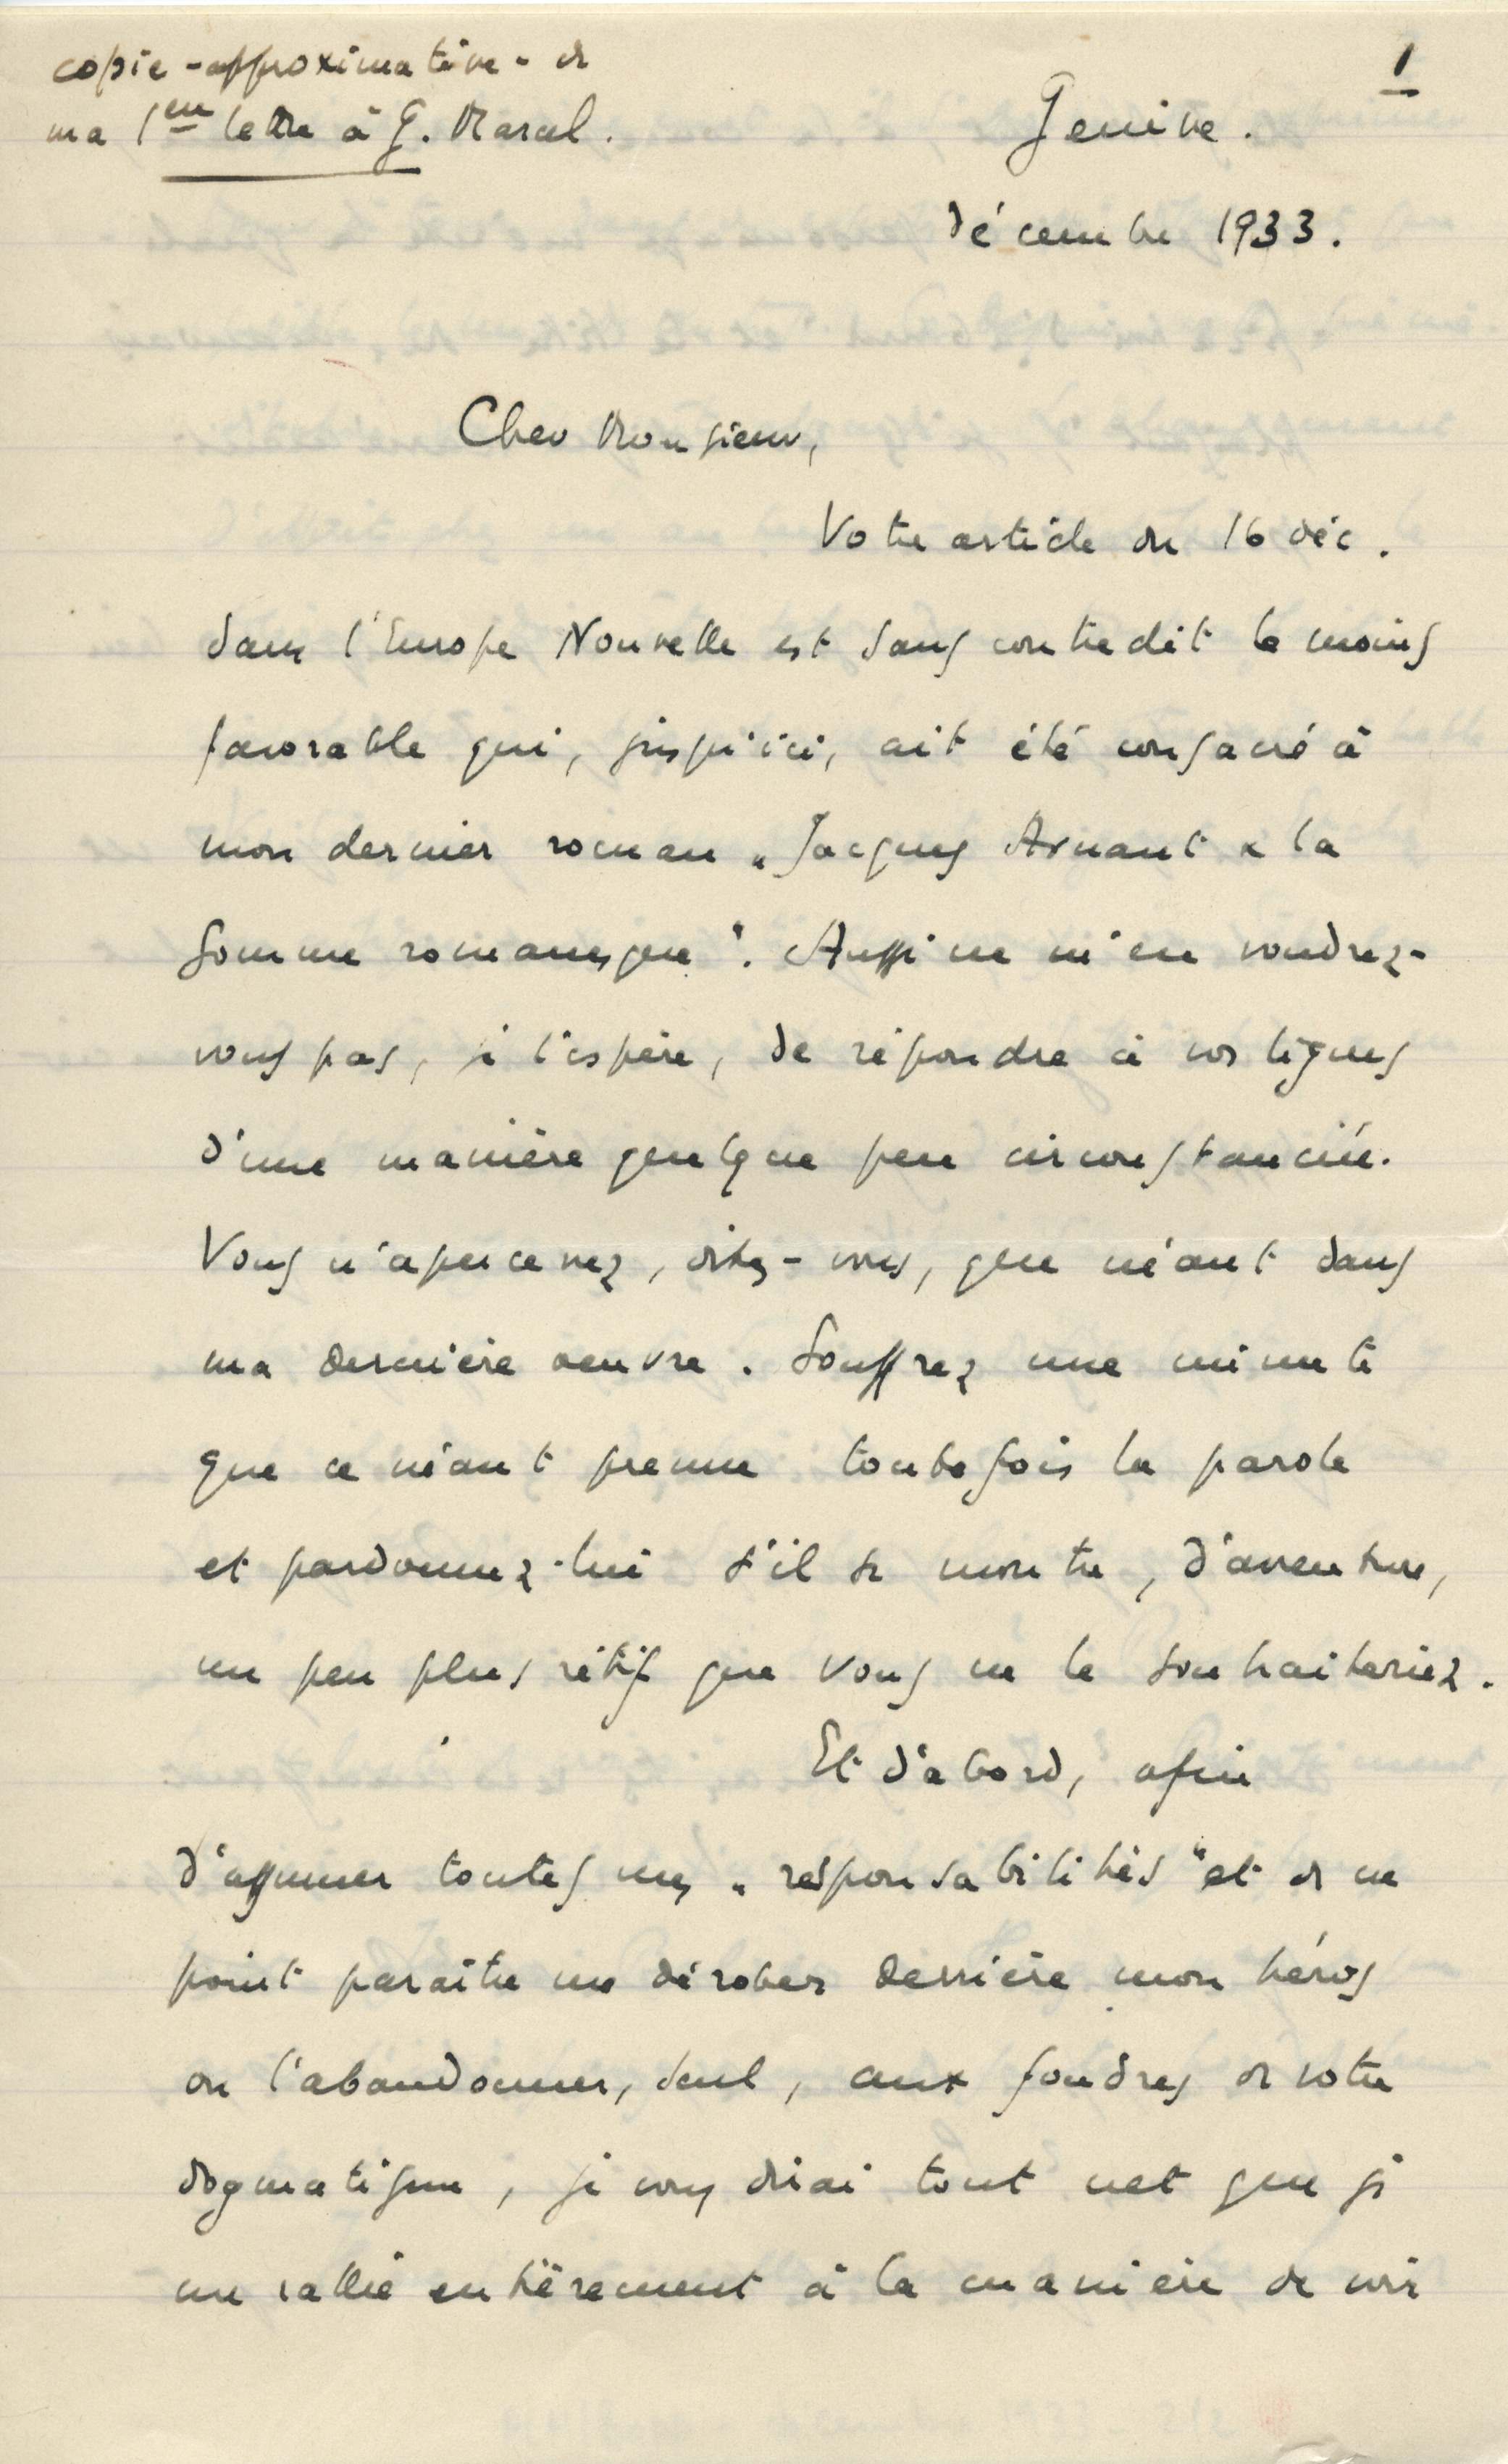 copie - approximative - de
1
ma 1ère lettre à G. Marcel.
Genève.
Décembre 1933.
Cher Monsieur,
Votre article du 16 déc.
dans l'Europe Nouvelle est sans contredit le moins
favorable qui, jusqu'ici, ait été consacré à
mon dernier roman "Jacques Arnaut & la
Somme romanesque". Aussi ne m'en voudrez-
vous pas, je l'espère, de répondre à vos lignes
d'une manière quelque peu circonstanciée.
Vous n'apercevez, dites-vous, que néant dans
ma dernière oeuvre. Souffrez une minute
que ce néant prenne toutefois la parole
et pardonnez-lui s'il se montre, d'aventure,
un peu plus rétif que vous ne le souhaiteriez.
Et d'abord, afin
d'assumer toutes mes "responsabilités" et de ne
point paraître me dérober derrière mon héros
ou l'abandonner, seul, aux foudres de votre
dogmatisme, je vous dirai tout net que je
me rallie entièrement à la manière de voir